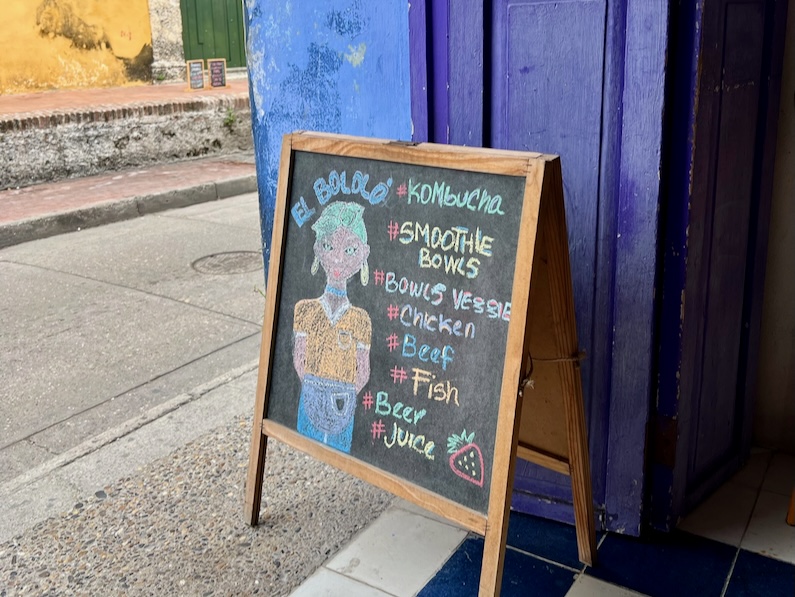 EL BOLOLÓ
#KOMbucha
#SMOOTHIE
BOWLS
#BOWLS VEGGIE
#Chicken
#Beef
#Fish
#Beer
#Juice